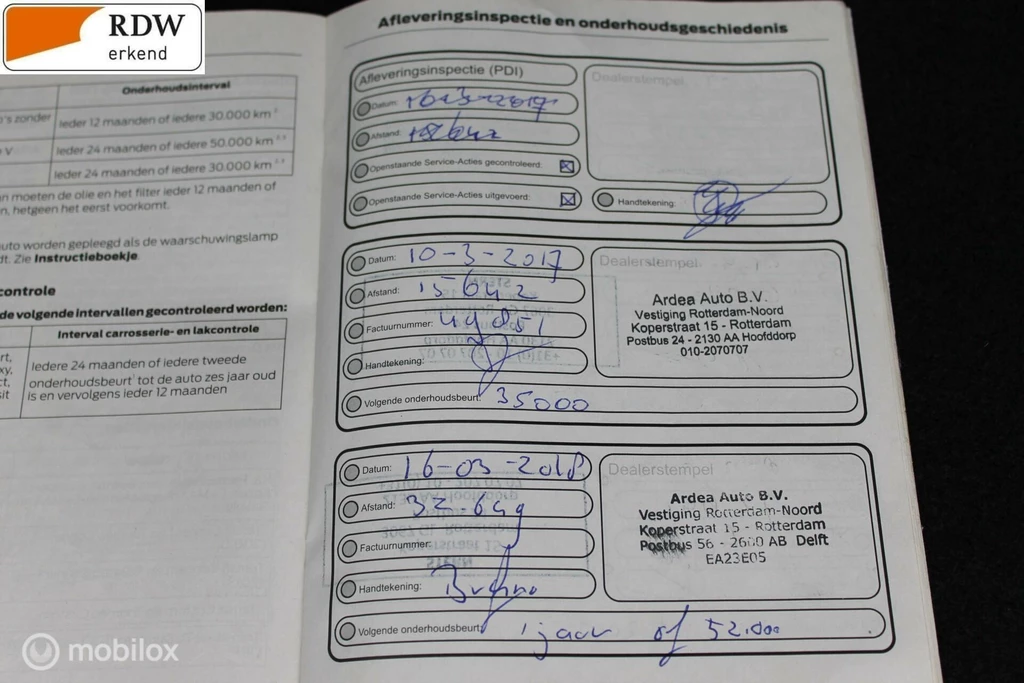 RDW
erkend
Onderhoudsinterval
's zonder
Ieder 12 maanden of iedere 30.000 km
V
Ieder 24 maanden of iedere 50.000 km
Ieder 24 maanden of iedere 30.000 km
n moeten de olie en het filter ieder 12 maanden of
n, hetgeen het eerst voorkomt.
uto worden gepleegd als de waarschuwingslamp
dt. Zie Instructieboekje.
controle
de volgende intervallen gecontroleerd worden:
Interval carrosserie- en lakcontrole
rt,
xy,
ct,
sit
Iedere 24 maanden of iedere tweede
onderhoudsbeurt tot de auto zes jaar oud
is en vervolgens ieder 12 maanden
Afleveringsinspectie en onderhoudsgeschiedenis
Afleveringsinspectie (PDI)
Dealerstempel
Datum: 10-3-2017
Afstand:
Openstaande Service-Acties gecontroleerd:
Openstaande Service-Acties uitgevoerd:
Handtekening:
Datum: 10-3-2017
Afstand: 15-642
Factuurnummer:
Handtekening:
Volgende onderhoudsbeurt: 35000
Dealerstempel
Ardea Auto B.V.
Vestiging Rotterdam-Noord
Koperstraat 15 - Rotterdam
Postbus 24 - 2130 AA Hoofddorp
010-2070707
Datum: 16-03-2018
Afstand: 32-649
Factuurnummer:
Handtekening:
Volgende onderhoudsbeurt: 1 jaar of 52.000
Dealerstempel
Ardea Auto B.V.
Vestiging Rotterdam-Noord
Koperstraat 15 - Rotterdam
Postbus 56 - 2600 AB Delft
EA23E05
mobilox